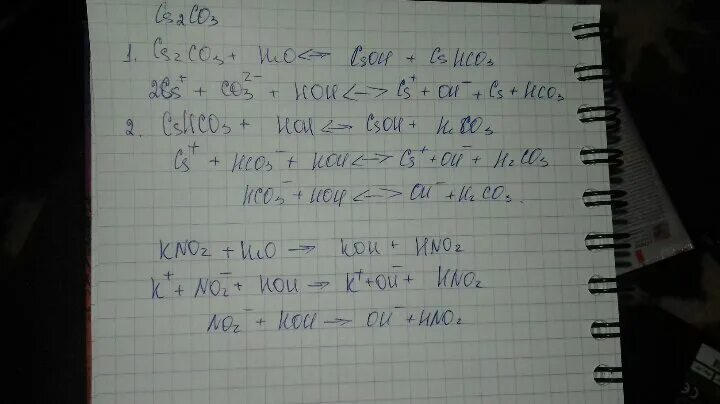 Cs₂CO₃
1. Cs₂CO₃ + H₂O ⇔ CsOH + CsHCO₃
2Cs⁺ + CO₃²⁻ + HOH <-> Cs⁺ + OH⁻ + Cs + HCO₃
2. CsHCO₃ + HOH <-> CsOH + H₂CO₃
Cs⁺ + HCO₃⁻ + HOH <-> Cs⁺ + OH⁻ + H₂CO₃
HCO₃⁻ + HOH <-> OH⁻ + H₂CO₃.
KNO₂ + H₂O → KOH + HNO₂
K⁺ + NO₂⁻ + HOH → K⁺ + OH⁻ + HNO₂
NO₂⁻ + HOH → OH⁻ + HNO₂